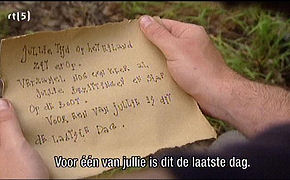 rtl 5
JULLIE TIJD OP HET EILAND
ZIT EROP.
VERZAMEL NOG EEN KEER AL
JULLIE BEZITTINGEN EN STAP
OP DE BOOT.
VOOR EEN VAN JULLIE IS DIT
DE LAATSTE DAG.
Voor één van jullie is dit de laatste dag.